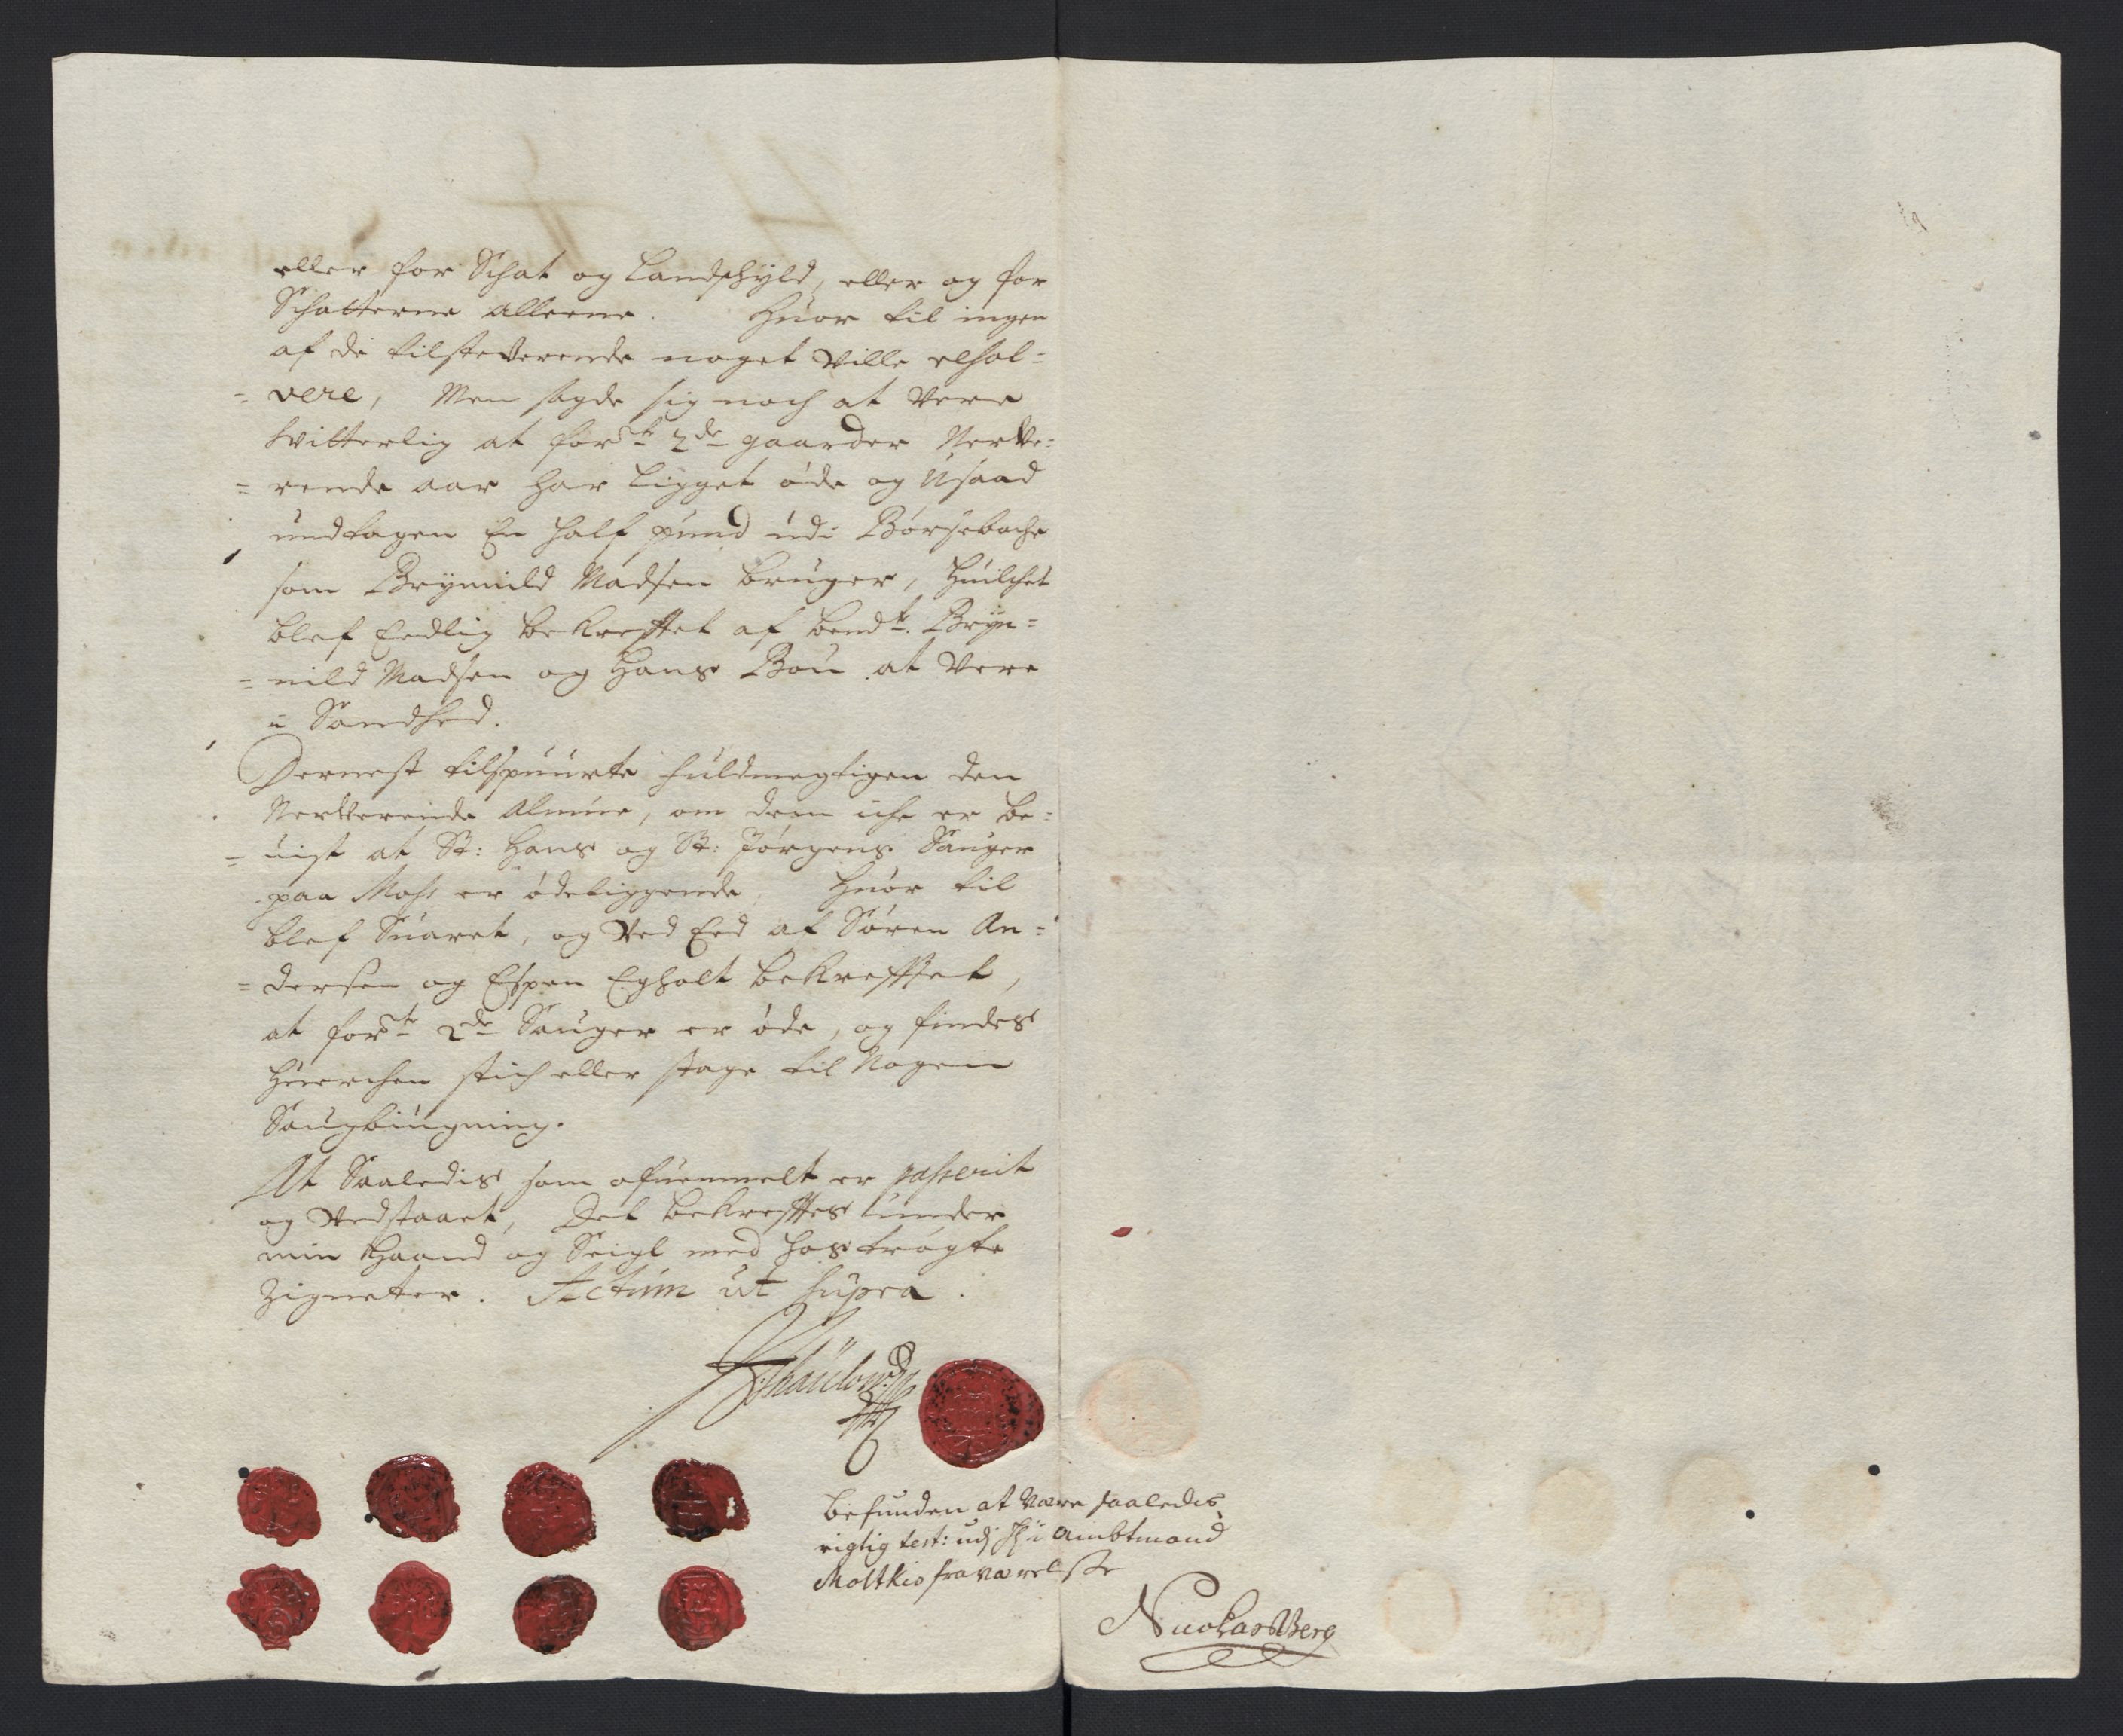 eller for Schat og Landschyld, eller og for
Schatterne alleene. Huor til ingen
af de tilsteverende noget ville
= vere, Men sagde sig noch at vere
vitterlig at forst: 2de gaarder Nerve=
= rende aar har ligget øde og Usaad
undtagen En half pund udi Børsebache
som Brynnild Madsen bruger, huilchet
blef Eedlig bekrefftet af bemdt: Bryn=
= nild Madsen og Hans Bou at vere
i Sandhed.
Dernest tilspuurte fuldmegtigen den
Nerverende Almue, om dem iche er be=
= uist at St: Hans og St: Jørgens Sauger
paa Moss er ødeliggende, Huor til
blef Suaret, og ved Eed af Søren An=
= dersen og Espen Egholt bekrefftet,
at forst: 2de Sauger er øde, og findes
huerchen stich eller stage til Nogen
Saugbiugning.
At Saaledis som ofuenmelt er passerit
og vedstaaet, Det bekrefftes under
min Haand og Seigl med hostrøgte
Zigneter. Actum ut supra.
befunden at være saaledis
rigtig test: udj Hr: Ambtmand
Moltkis fraværelsse
Nicolas Berg